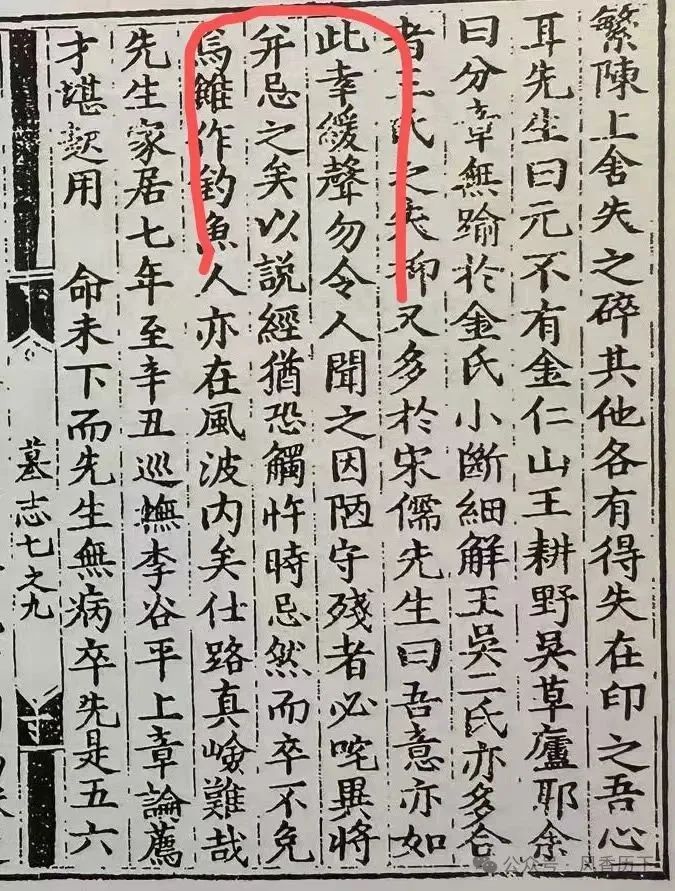 繁陳上舍失之碎其他各有得失在印之吾心
耳先生曰元不有金仁山王耕野吳草廬耶余
曰分章無踰於金氏小斷細解王吳二氏亦多合
者王氏之失抑又多於宋儒先生曰吾意亦如
此幸緩聲勿令人聞之因陋守殘者必咤異將
并忌之矣以說經猶恐觸忤時忌然而卒不免
焉雖作釣魚人亦在風波內矣仕路真嶮難哉
先生家居七年至辛丑巡撫李谷平上章論薦
才堪起用 命未下而先生無病卒先是五六
墓志七之九
公众号 · 风香历下